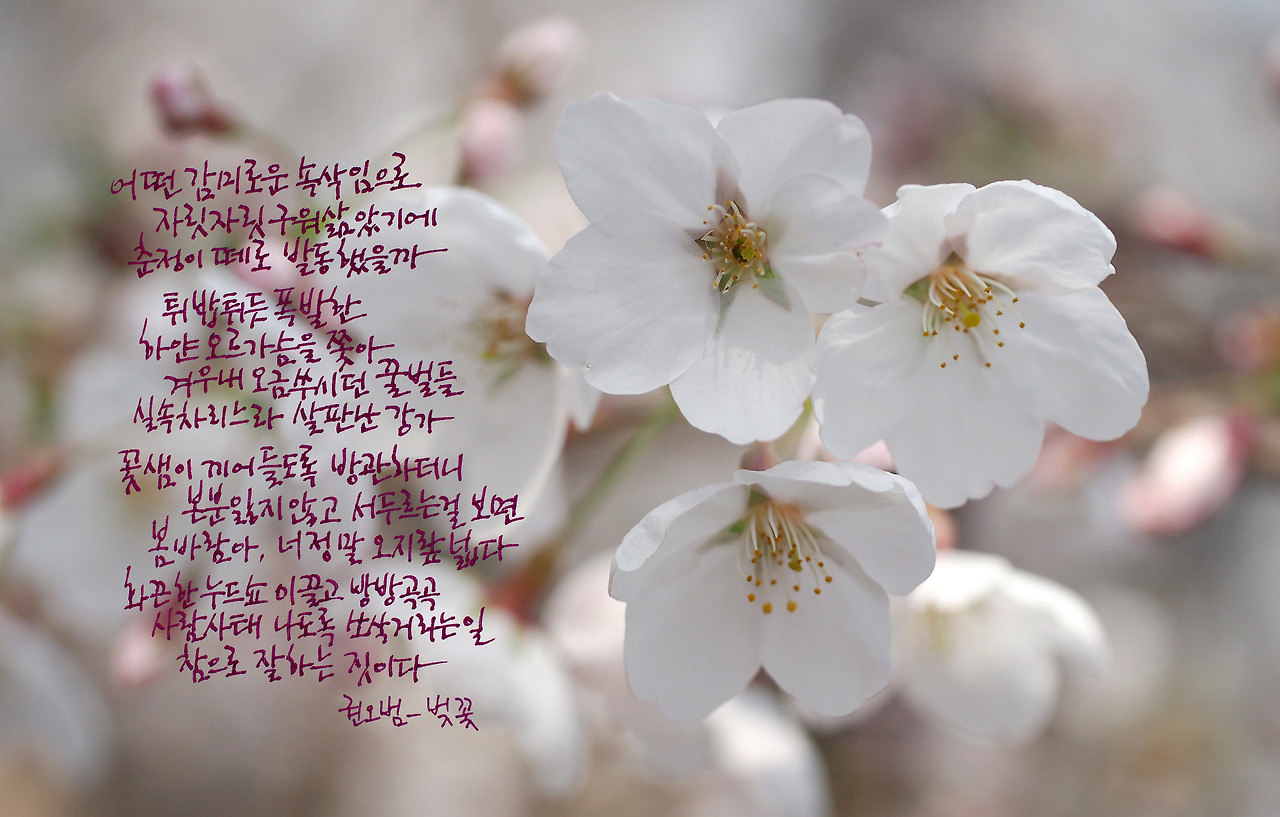 어떤 감미로운 속삭임으로
자릿자릿 구워삶았기에
춘정이 떼로 발동했을까
튀밥튀듯 폭발한
하얀 오르가슴을 쫓아
겨우내 오금쑤시던 꿀벌들
실속차리느라 살판난 강가
꽃샘이 끼어들도록 방관하더니
본분잃지않고 서두르는걸 보면
봄바람아, 너 정말 오지랖 넓다
화끈한 누드쇼 이끌고 방방곡곡
사람사태 나도록 쏘삭거리는일
참으로 잘하는 짓이다
권오범-벚꽃